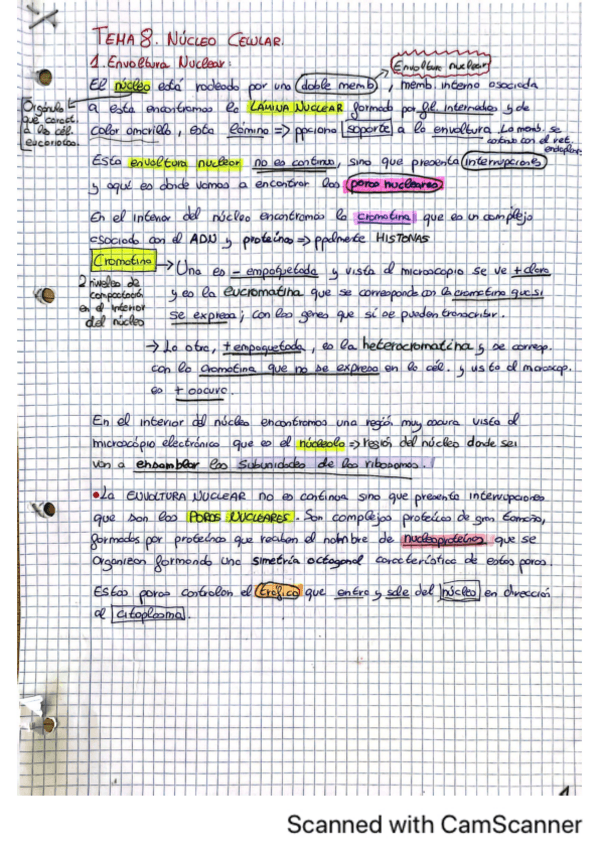 TEMA 8. NÚCLEO CELULAR.
1. Envoltura Nuclear:
Envoltura nuclear
El núcleo está rodeado por una doble memb, memb. interna asociada
Orgánulo que caract. a las cél. eucariotas.
a esta encontramos la LÁMINA NUCLEAR formada por fil. intermedios y de
color amarillo, esta lámina => ppciona soporte a la envoltura. La memb. se
continúa con el ret. endoplas.
Esta envoltura nuclear no es continua, sino que presenta interrupciones
y aquí es donde vamos a encontrar los poros nucleares
En el interior del núcleo encontramos la cromatina que es un complejo
asociado con el ADN y proteínas => ppalmente HISTONAS
Cromatina → Una es - empaquetada y vista al microscopio se ve + clara
2 niveles de compactación en el interior del núcleo
y es la eucromatina que se corresponde con la cromatina que sí
se expresa; con los genes que sí se pueden transcribir.
→ La otra, + empaquetada, es la heterocromatina y se corresp.
con la cromatina que no se expresa en la cél. y vista al microscop.
es + oscura.
En el interior del núcleo encontramos una región muy oscura vista al
microscópio electrónico que es el núcleolo => región del núcleo donde se
van a ensamblar las subunidades de los ribosomas.
• La ENVOLTURA NUCLEAR no es continua sino que presenta interrupciones
que son los POROS NUCLEARES. Son complejos proteicos de gran tamaño,
formados por proteínas que reciben el nombre de nucleoproteínas que se
organizan formando una simetría octogonal característica de estos poros.
Estos poros controlan el tráfico que entre y sale del núcleo en dirección
al citoplasma.
1
Scanned with CamScanner